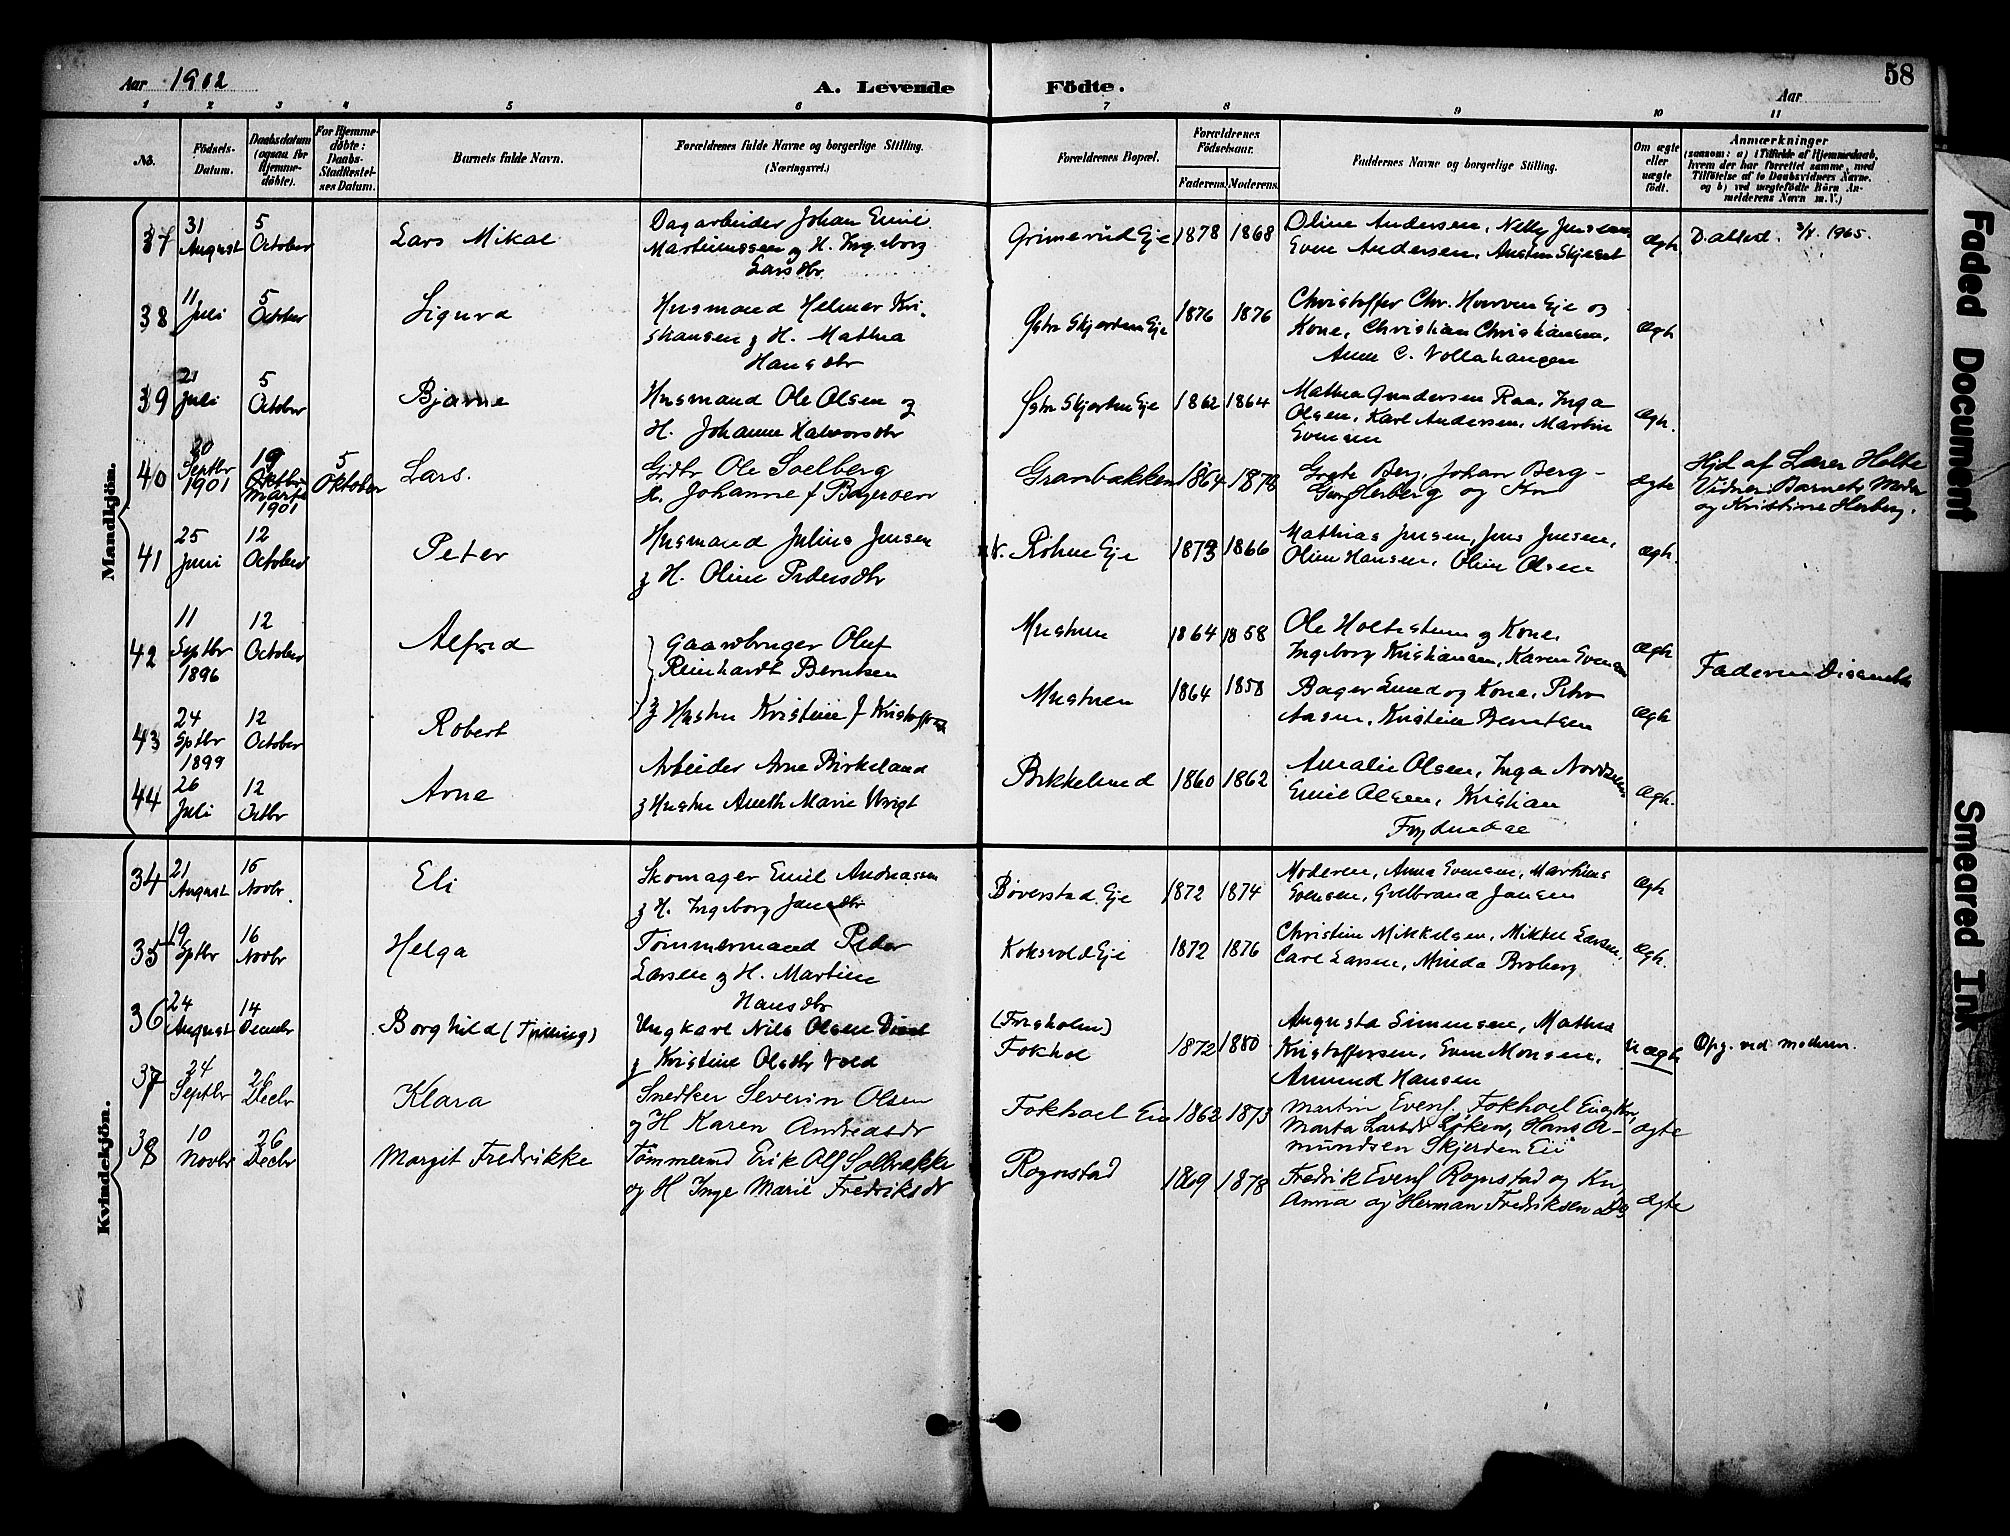 Aar 1902
A. Levende Födte.
Aar
58
1 2 3 4 5 6 7 8 9 10 11
No.
Födsels-Datum.
Daabsdatum (ogsaa for Hjemme-döbte).
For Hjemme-döbte: Daabs-Stadfæstel-ses Datum.
Barnets fulde Navn.
Forældrenes fulde Navne og borgerlige Stilling. (Næringsvei.)
Forældrenes Bopæl.
Forældrenes Födselsaar.
Faderens. Moderens.
Faddernes Navne og borgerlige Stilling.
Om ægte eller uægte födt.
Anmærkninger
(saasom: a) i Tilfælde af Hjemmedaab,
hvem der har forrettet samme, med
Tilföielse af to Daabsvidners Navne,
og b) ved uægtefödte Börn An-
melderens Navn m. V.)
Mandkjön.
37 31 August 5 October Lars Mikal Dagarbeider Johan Emil Martinussen og H. Ingeborg Larsdtr Grimerud Eje 1878 1868 Oline Andersen, Nelly Jensen, Even Andersen, Austin Skjeset ægte D. attest. 1965.
38 11 Juli 5 October Sigurd Husmand Helmer Kristiansen og H. Mathea Hansdtr Østre Skjerden Eje 1876 1876 Christoffer Chr. Hovven Eje og Kone, Christian Christiansen, Anne C. Vollahaugen ægte
39 21 Juli 5 October Bjarne Husmand Ole Olsen og H. Johanne Halvorsdtr Østre Skjerden Eje 1862 1864 Mathea Gundersen Raa, Inga Olsen, Karl Andersen, Martin Evensen ægte.
40 20 Septbr 1901 19 Oktbr Marts 1901 5 Oktober Lars. Gdbr Ole Solberg H. Johanne f Bagerven Granbakken 1864 1878 Grete Berg, Johan Berg - Herberg og Kn ægte Hjd af Lærer Holte Vidner Barnets Moder og Kristine Herberg.
41 25 Juni 12 October Peter Husmand Julius Jensen og H. Oline Pedersdtr N. Rohne Eje 1873 1866 Mathias Jensen, Jens Jensen, Oline Hansen, Oline Olsen ægte.
42 11 Septbr 1896 12 October Alfred Gaardbruger Oluf Reinhardt Berntsen og Hustru Kristine f Kristoffersen Mustuen 1864 1858 Ole Holtestuen og Kone, Ingeborg Kristiansen, Karen Evensen ægte Faderen Dissenter
43 24 Sptbr 1899 12 October Robert Mustuen 1864 1858 Bager Lund og Kone, Peter Aasen, Kristine Berntsen ægte
44 26 Juli 12 Octbr Arne Arbeider Arne Birkeland og Hustru Aneth Marie Wrigt Bekkelund 1860 1862 Amalie Olsen, Inga Nordseth Emil Olsen, Kristian Frydnebae ægte.
Kvindekjön.
34 21 August 16 Novbr. Eli Skomager Emil Andreassen og H. Ingeborg Jansdtr Böverstad Eje 1872 1874 Moderen, Anna Evensen, Marthinus Evensen, Gulbrand Jansen ægte
35 19 Sptbr 16 Novbr Helga Tømmermand Peder Larsen og H. Martine Hansdtr Koksvold Eje 1872 1876 Christine Mikkelsen, Mikkel Larsen, Carl Larsen, Minda Broberg ægte.
36 24 August 14 Decmbr Borghild (Tvilling) Ungkarl Nils Olsen og Kristine Olsdtr Vold (Frisholm) Fokhol 1872 1880 Augusta Simensen, Mathea Kristoffersen, Even Monsen, Amund Hansen uægte Opg. ved moderen.
37 24 Septbr 26 Decbr Klara Snedker Severin Olsen og H Karen Andreasdr Fokhoel Eie 1862 1873 Martin Evens. Fokhoel Eie og Kn, Marta Larsdr Löken, Hans A-mundsen Skjerden Eie ægte
38 10 Novbr 26 Decbr Margit Fredrikke Tömmermd Erik Alf Solbrække og H Inge Marie Fredriksdr Rognstad 1869 1878 Fredrik Evens. Rognstad og Kn, Anna og Herman Fredriksen ds ægte
Faded Document
Smeared Ink